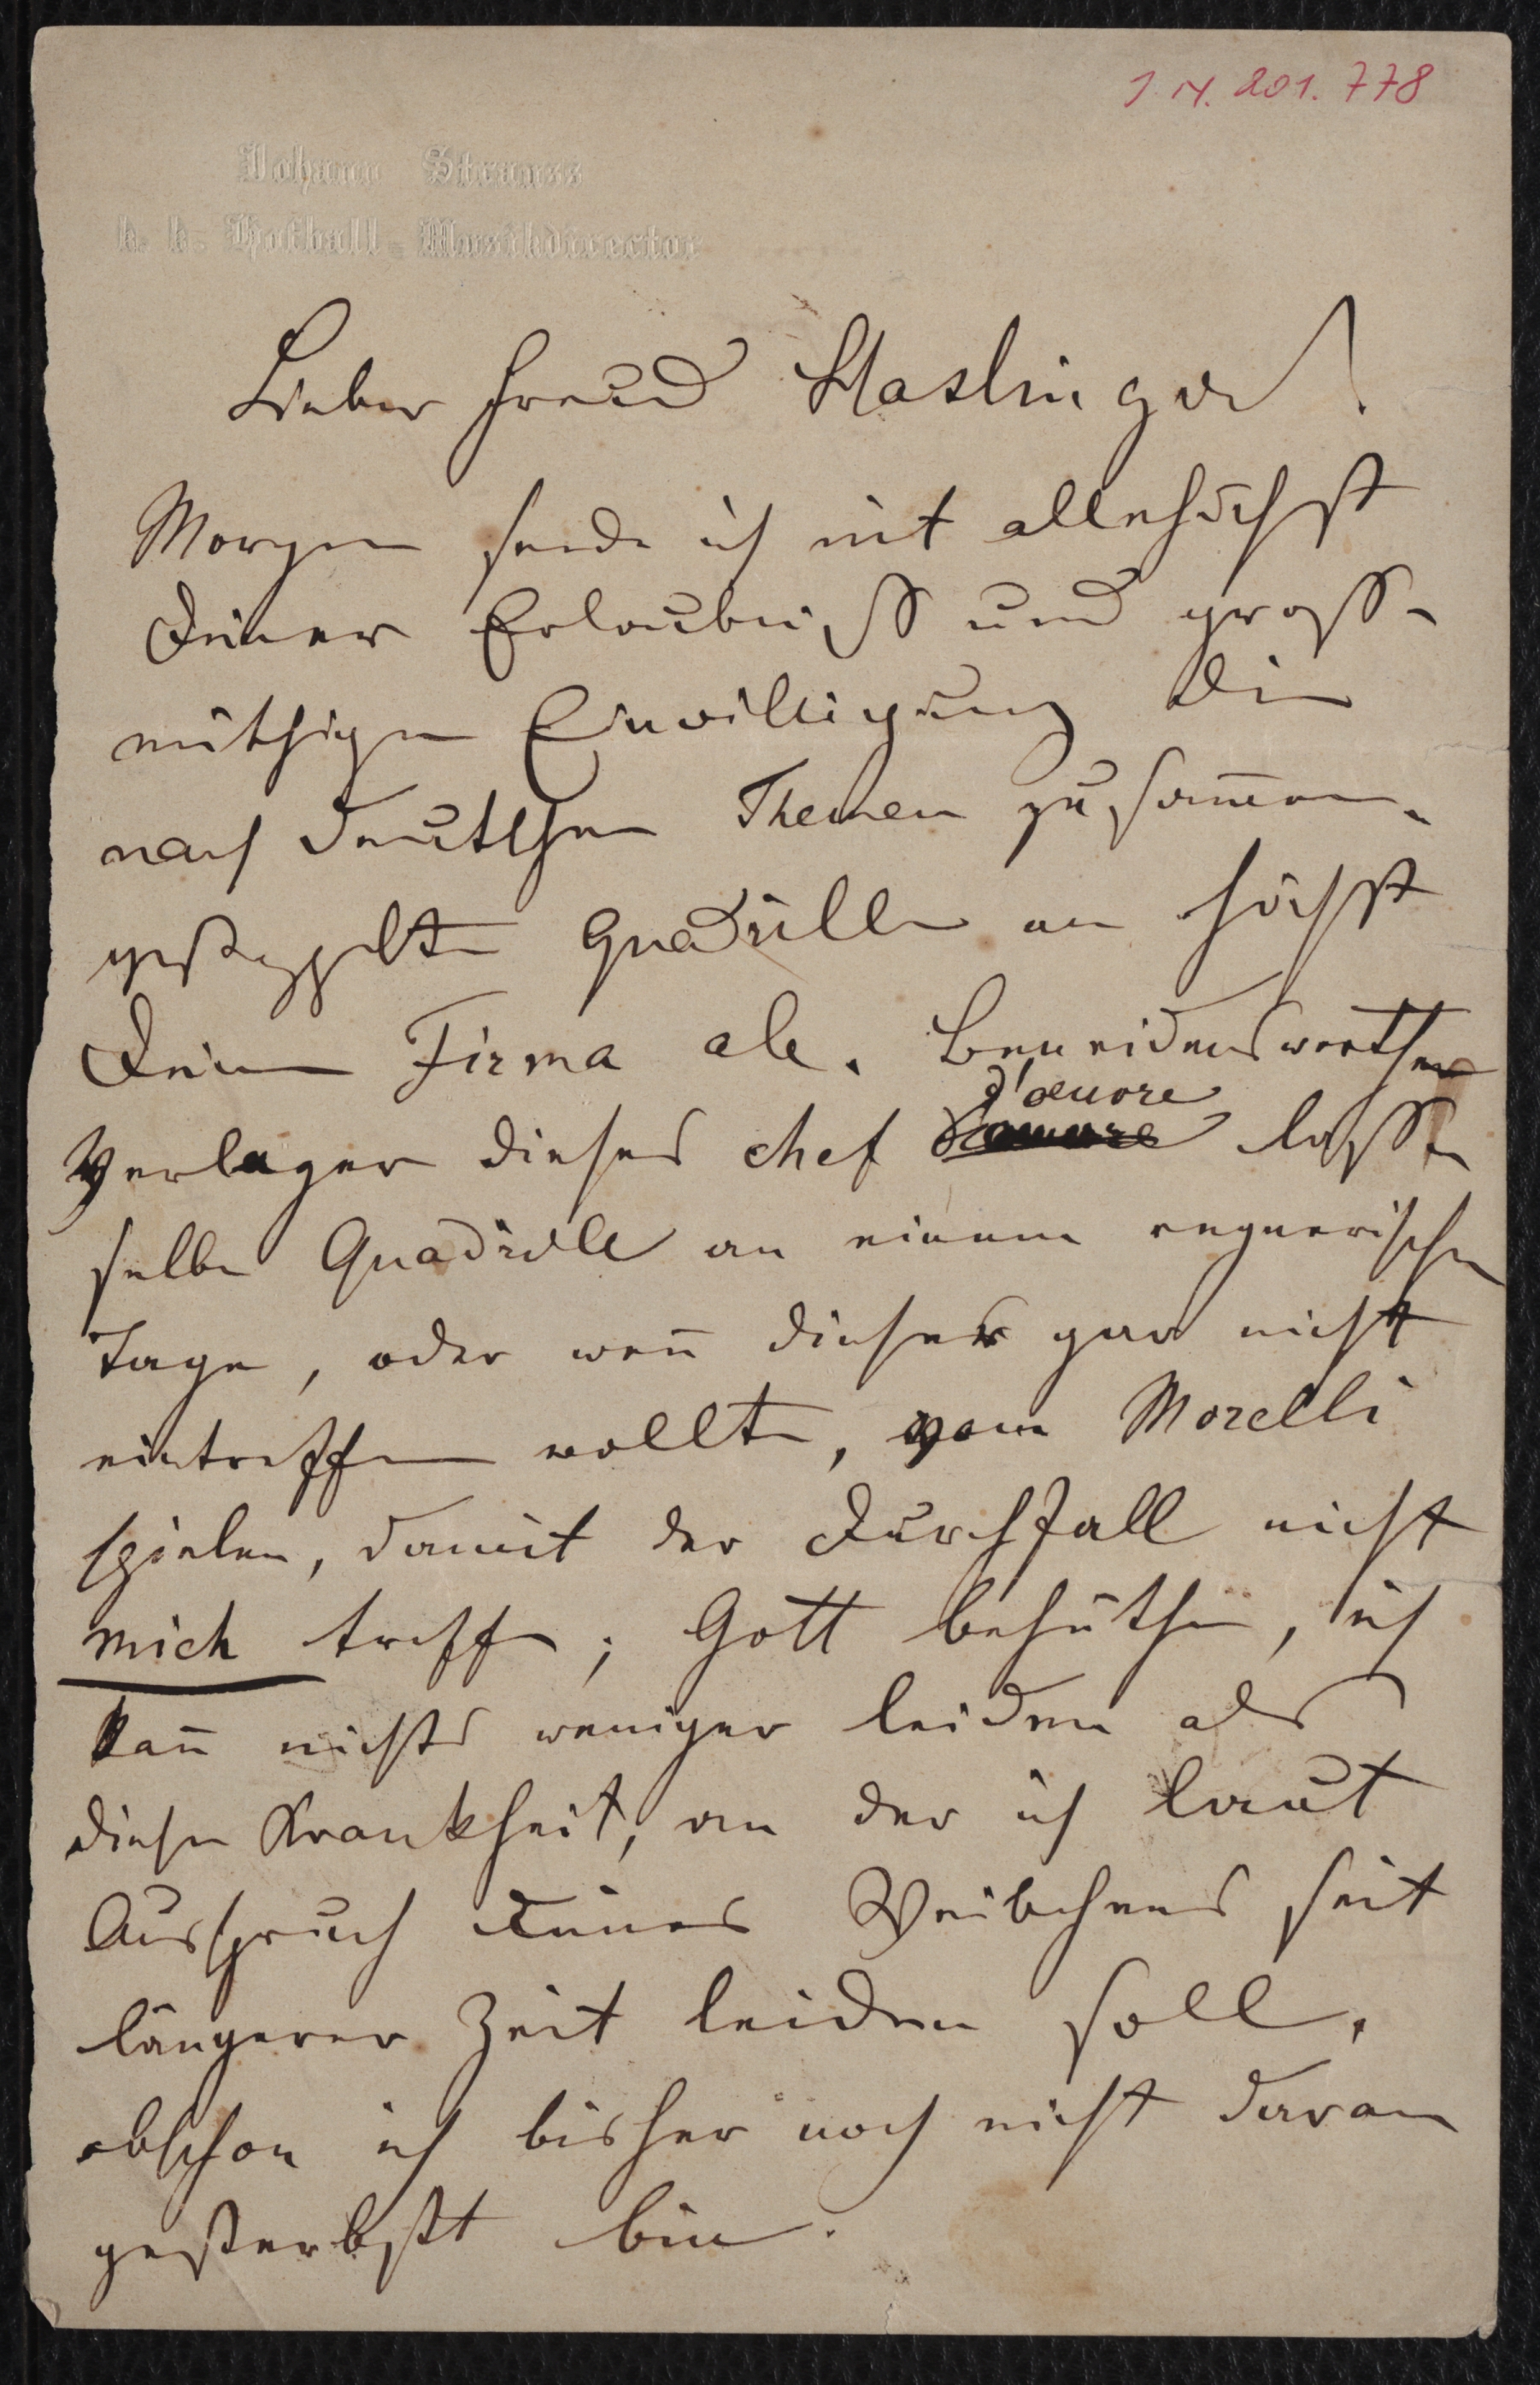 I. N. 201.778
Johann Strauss
k. k. Hofball-Musikdirector
Lieber Freund Haslinger!
Morgen sende ich mit allerhöchst
Deiner Erlaubniß und groß-
müthigen Einwilligung die
nach deutschen Themen zusam̅en-
gestoppelte Quadrille an höchst
Deine Firma ab. Beneidenswerther
Verleger dieses chef d'œuvre lasse
selbe Quadrille an einem regnerischen
Tage, oder wen̅ dieser gar nicht
eintreffen wollte, vom Morelli
spielen, damit der Durchfall nicht
mich treffe; Gott behüthe, ich
kan̅ nichts weniger leiden als
diese Krankheit, an der ich laut
Ausspruch Deines Weibchens seit
längerer Zeit leiden soll,
obschon ich bisher noch nicht daran
gesterbßt bin.